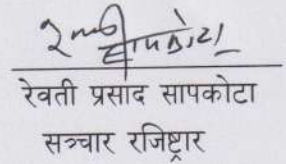 रेवती प्रसाद सापकोटा
सञ्चार रजिष्ट्रार